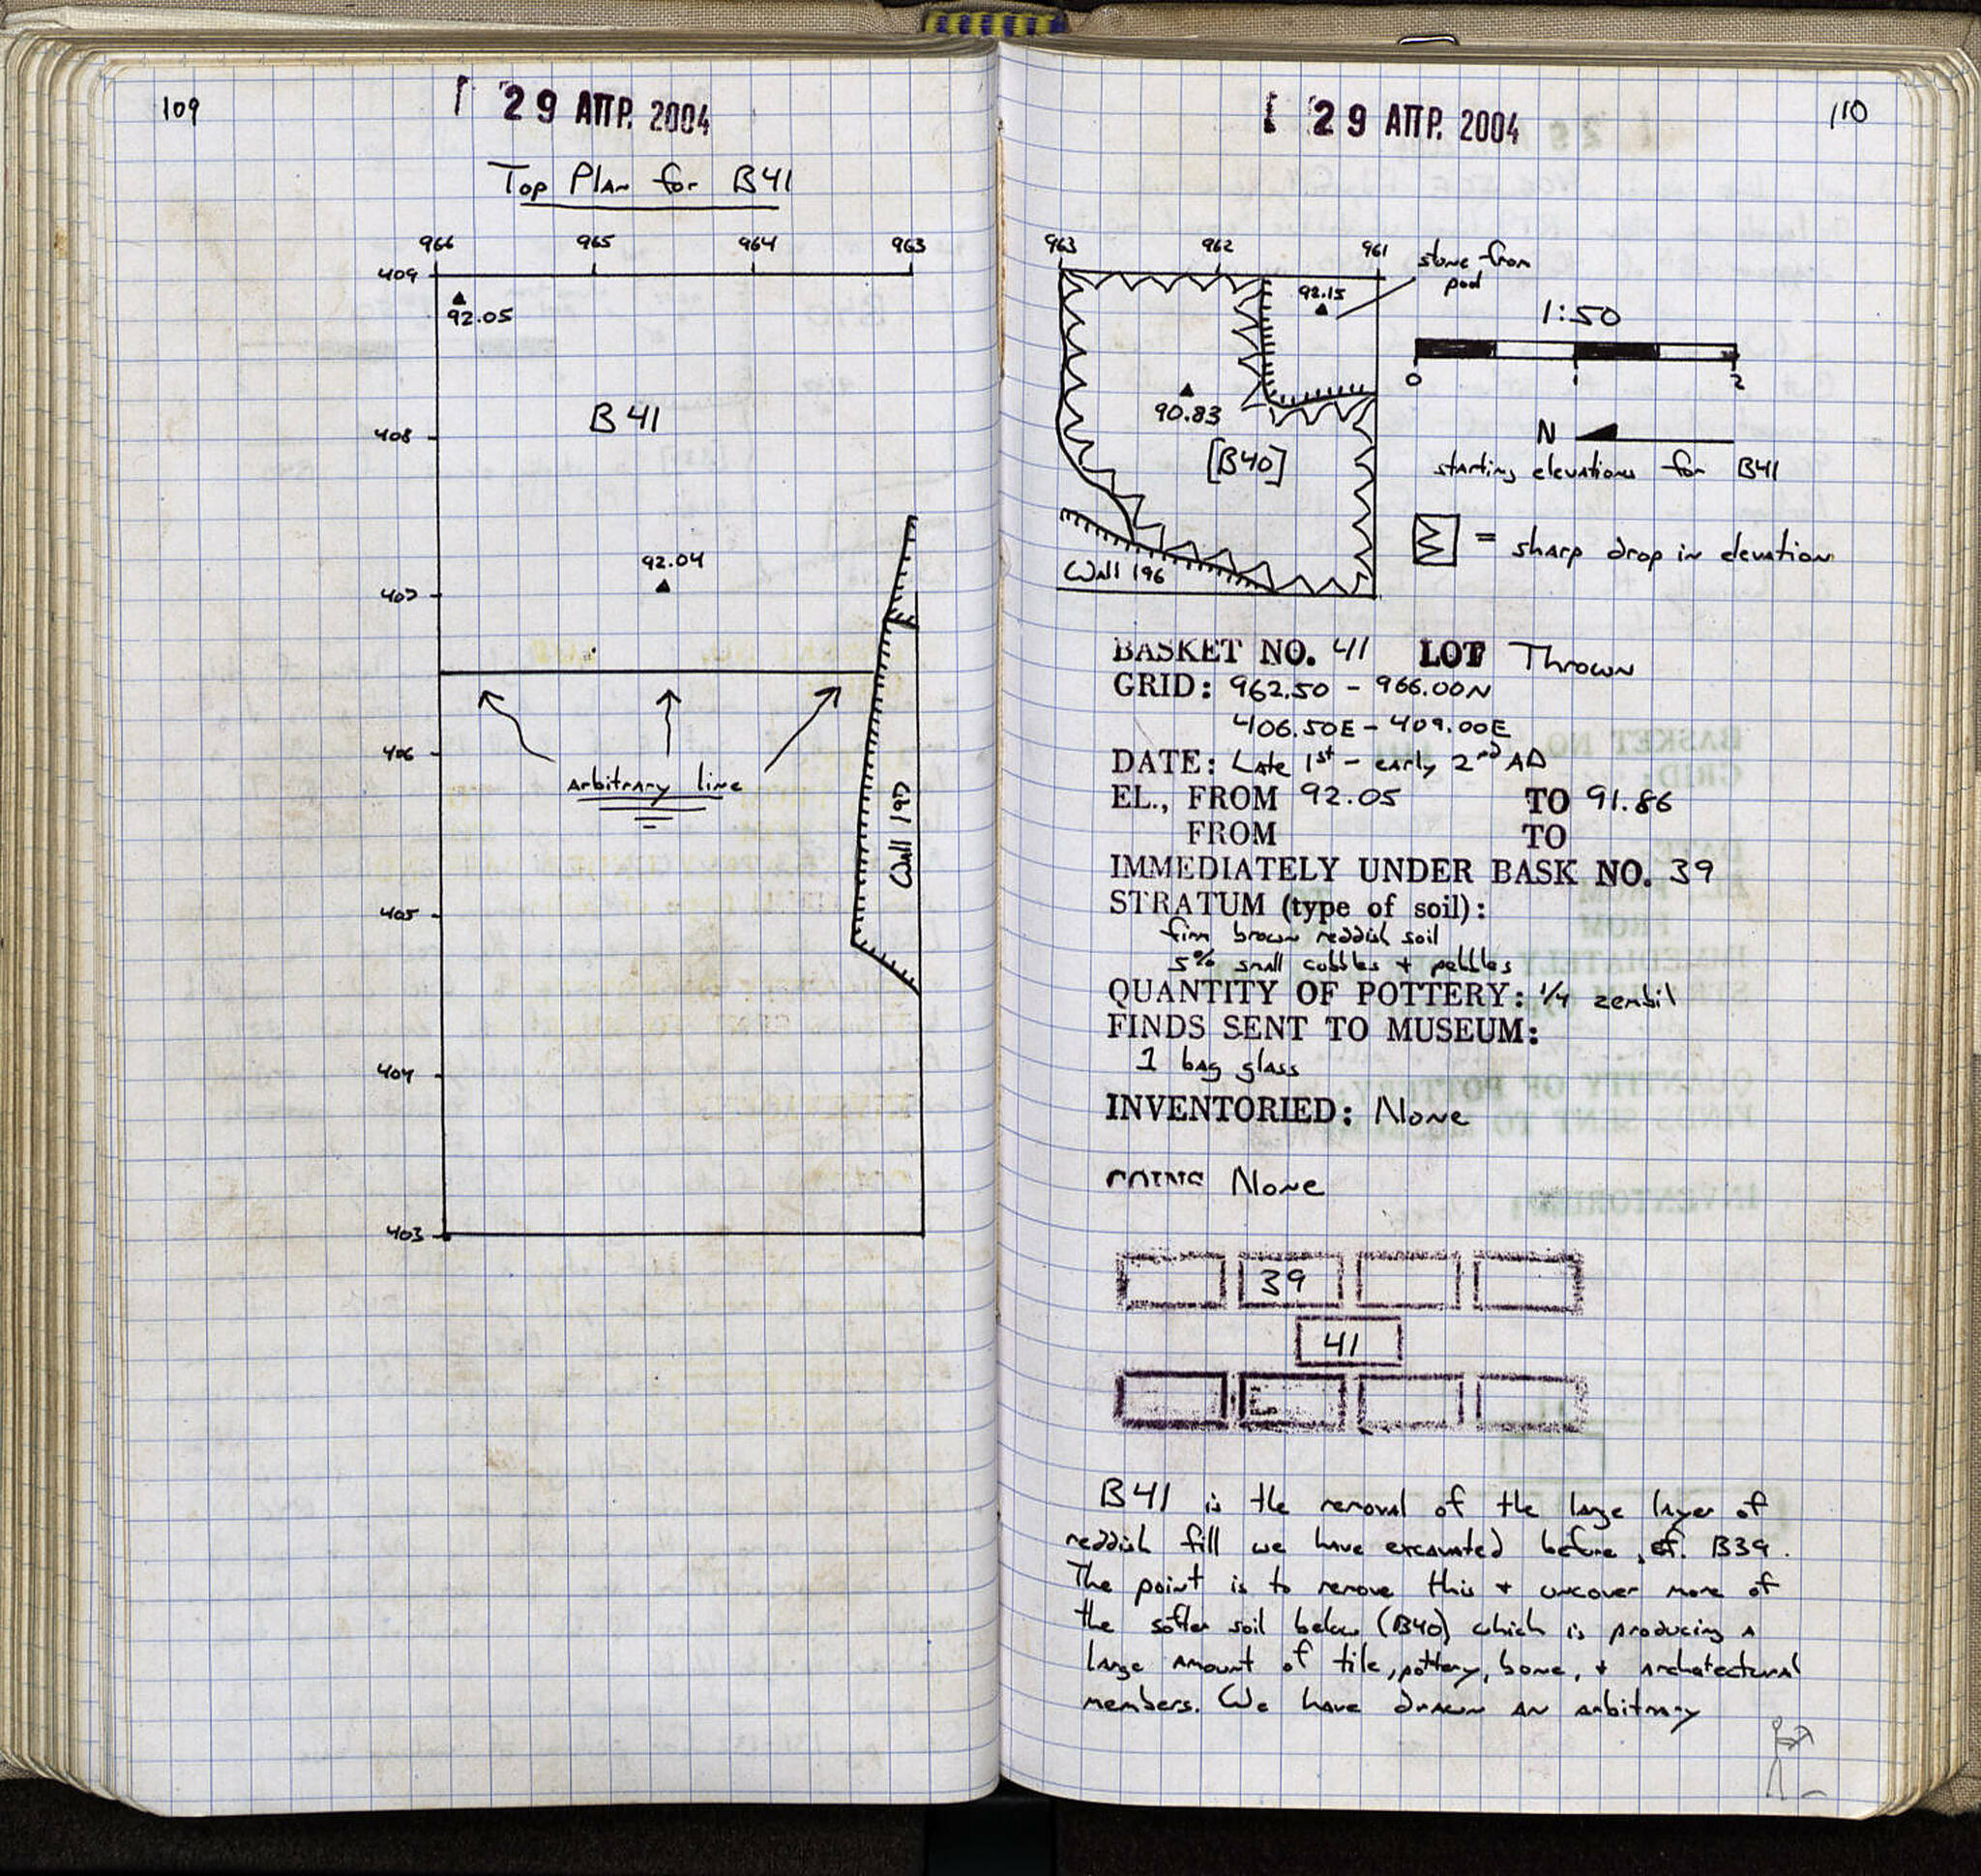 109
29 ΑΠΡ. 2004
Top Plan for B41
966 965 964 963
409
92.05
B41
408
92.04
407
406
arbitrary line
Wall 197
405
404
403
29 ΑΠΡ. 2004
110
963 962 961
stone from
pod
92.15
1:50
0 1 2
90.83
N
[B40]
starting elevations for B41
= sharp drop in elevation
Wall 196
BASKET NO. 41 LOT Thrown
GRID: 962.50 - 966.00N
406.50E - 409.00E
DATE: Late 1st - early 2nd AD
EL., FROM 92.05 TO 91.86
FROM TO
IMMEDIATELY UNDER BASK NO. 39
STRATUM (type of soil):
firm brown reddish soil
5% small cobbles + pebbles
QUANTITY OF POTTERY: 1/4 zembil
FINDS SENT TO MUSEUM:
1 bag glass
INVENTORIED: None
COINS None
39
41
B41 is the removal of the large layer of
reddish fill we have excavated before, cf. B39.
The point is to remove this + uncover more of
the softer soil below (B40) which is producing a
large amount of tile, pottery, bone, + archatectural
members. We have drawn an arbitrary